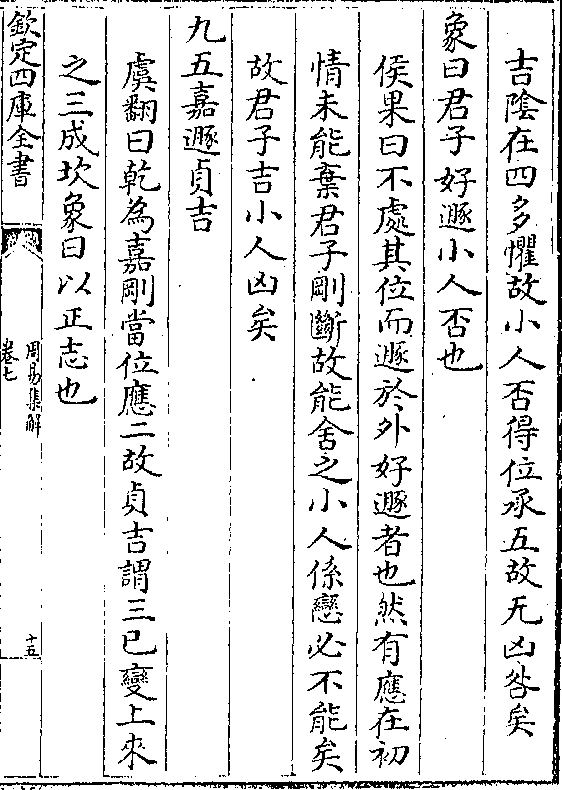 吉陰在四多懼故小人否得位承五故无凶咎矣
象曰君子好遯小人否也
侯果曰不處其位而遯於外好遯者也然有應在初
情未能棄君子剛斷故能舍之小人係戀必不能矣
故君子吉小人凶矣
九五嘉遯貞吉
虞翻曰乾為嘉剛當位應二故貞吉謂三已變上來
之三成坎象曰以正志也
欽定四庫全書
周易集解
卷七
十五